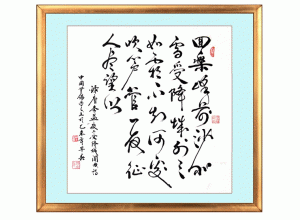 回樂峰前沙似
雪受降城外月
如霜不知何處
吹蘆管一夜征
人盡望鄉
錄唐李益夜上受降城聞笛詩
中國